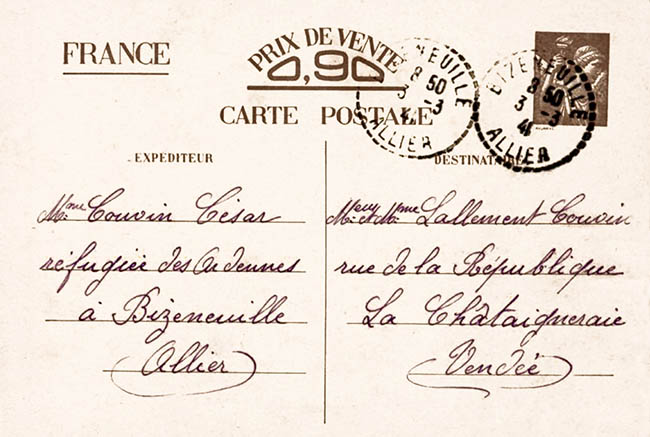 FRANCE
PRIX DE VENTE
0,90
CARTE POSTALE
BIZENEUILLE
8 50
3 -3
41
ALLIER
BIZENEUILLE
8 50
3 -3
41
ALLIER
EXPÉDITEUR
Mme Couvin César
réfugiée des Ardennes
à Bizeneuille
(Allier)
DESTINATAIRE
Meur et Mme Lallement Couvin
rue de la République
La Châtaigneraie
(Vendée)